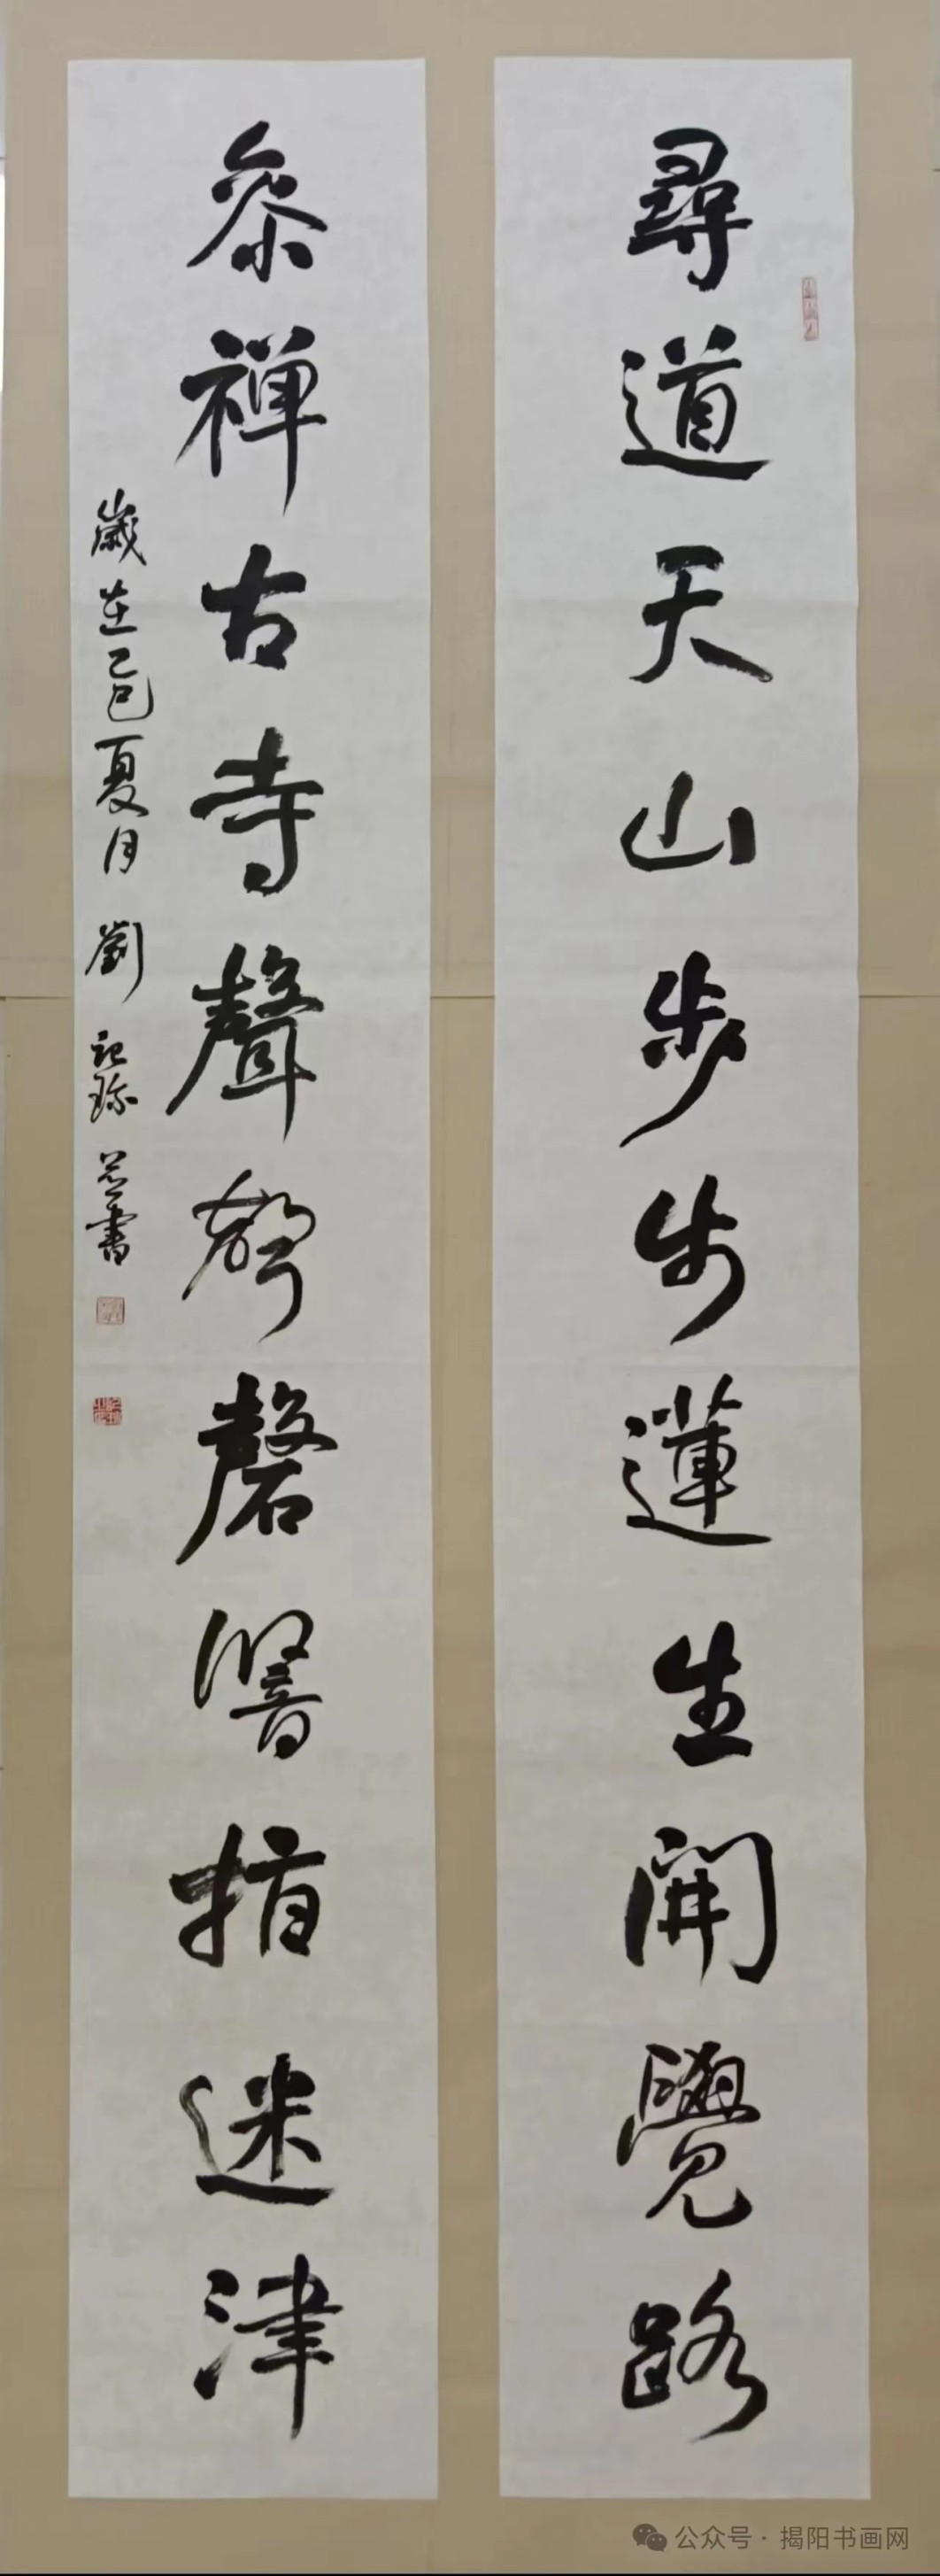 尋道天山步步蓮生開覺路
參禪古寺聲聲磬響指迷津
歲在乙巳夏月 劉 書
公众号 · 揭阳书画网